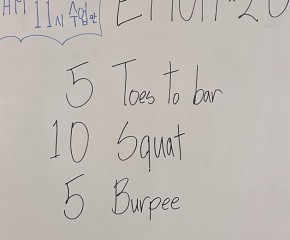 AM 11시 수업만
EMOM*20
5 Toes to bar
10 Squat
5 Burpee